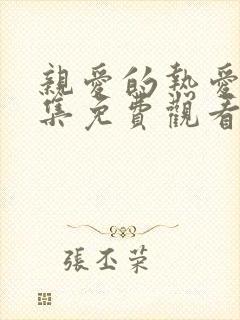 親愛的熱愛
集免費觀看
張丕榮